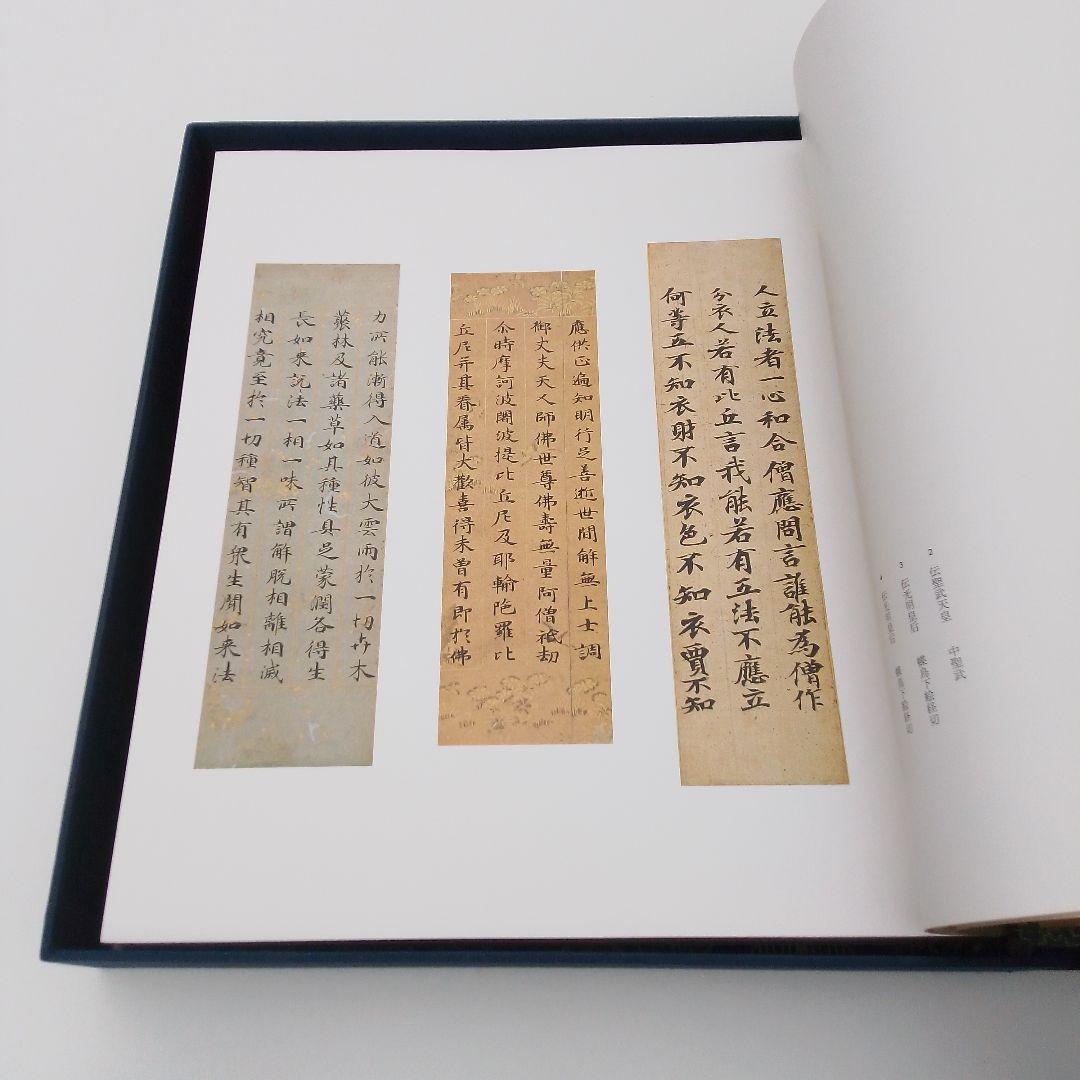 2
伝聖武天皇 中聖武
3
伝光明皇后 蝶鳥下絵経切
人立法者一心和合僧應問言誰能為僧作
分衣人若有比丘言我能若有五法不應立
何等五不知衣財不知衣色不知衣賈不知
應供正遍知明行足善逝世間解無上士調
御丈夫天人師佛世尊佛壽無量阿僧祇劫
尒時摩訶波闍波提比丘尼及耶輸陁羅比
丘尼并其眷属皆大歡喜得未曽有即於佛
力所能漸得入道如彼大雲雨於一切卉木
藂林及諸藥草如其種性具足蒙潤各得生
長如来説法一相一味所謂解脱相離相滅
相究竟至於一切種智其有衆生聞如来法